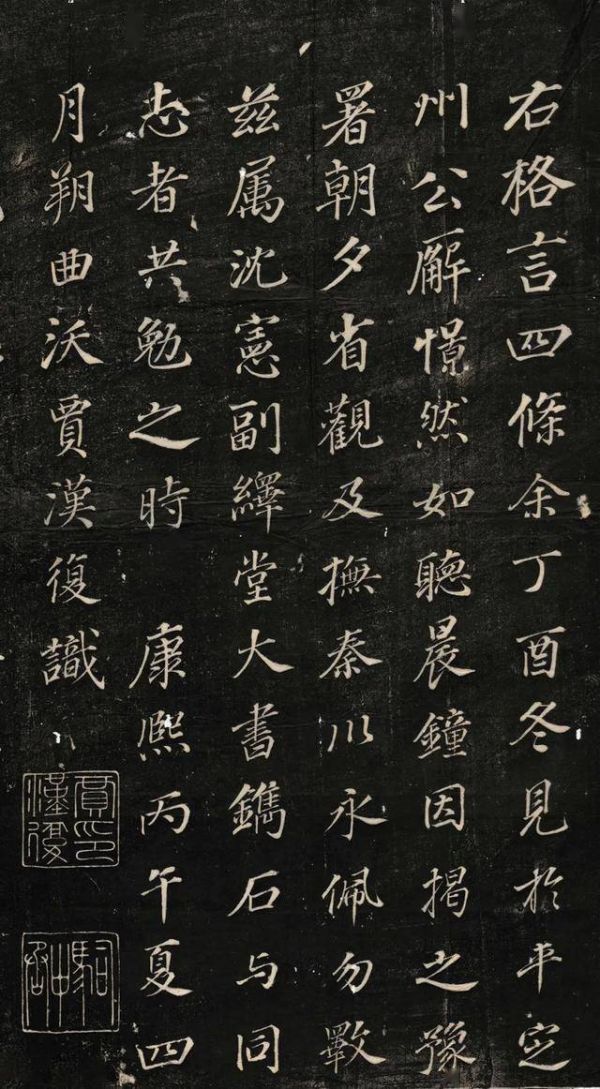 右格言四條余丁酉冬見於平定
州公廨憬然如聽晨鐘因揭之豫
署朝夕省觀及撫秦川永佩勿斁
茲属沈憲副繹堂大書鐫石与同
志者共勉之時 康熙丙午夏四
月朔曲沃賈漢復識
賈印漢復